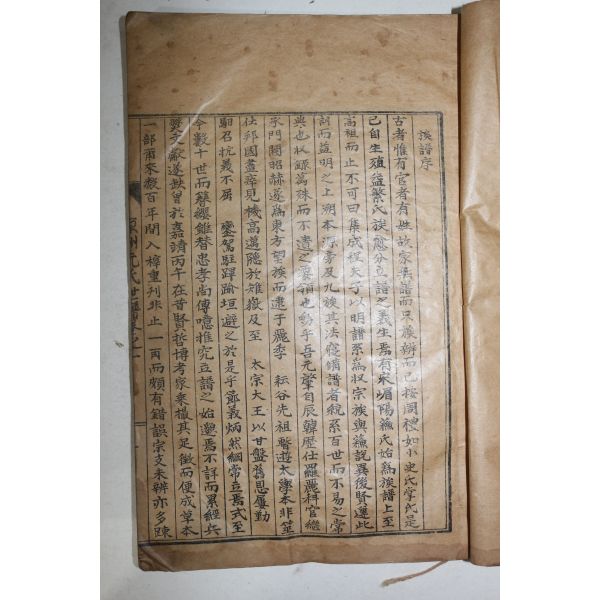 族譜序
古者惟有官者有姓故家無譜而只族辨而已按周禮如小史氏掌氏是
己自生殖益繁氏族愈分立譜之義生焉有宋嵋陽蘓氏始為族譜上至
高祖而止不可曰集成程夫子以明譜系為収宗族與蘓說異後賢遵此
詞而益明之上溯本源旁及九族其法寢備譜者統系百世而不易之常
典也収錄萬殊而不遺之要領也乎吾元肇自辰韓歷仕羅麗科官繼
承門閥昭赫遂為東方望族而逮于麗季 耘谷先祖暫遊太學本非筮
仕邦國盡瘁見機高遯隱於雉嶽及至 太宗大王以甘盤舊恩屢勤
馹召抗義不屈 鑾駕駐蹕踰垣避之於是乎節義炳然綱常立焉式至
今數十世而簪纓雖替忠孝尚傳噫推究立譜之始邈焉不詳而累經兵
燹文獻遂缺曾於嘉靖丙午在昔賢博考衆乘撮其足徵而便成草本
一部爾來數百年間入梓重刊非止一再而頗有錯誤宗支未辨亦多踈
原州元氏世譜卷之一